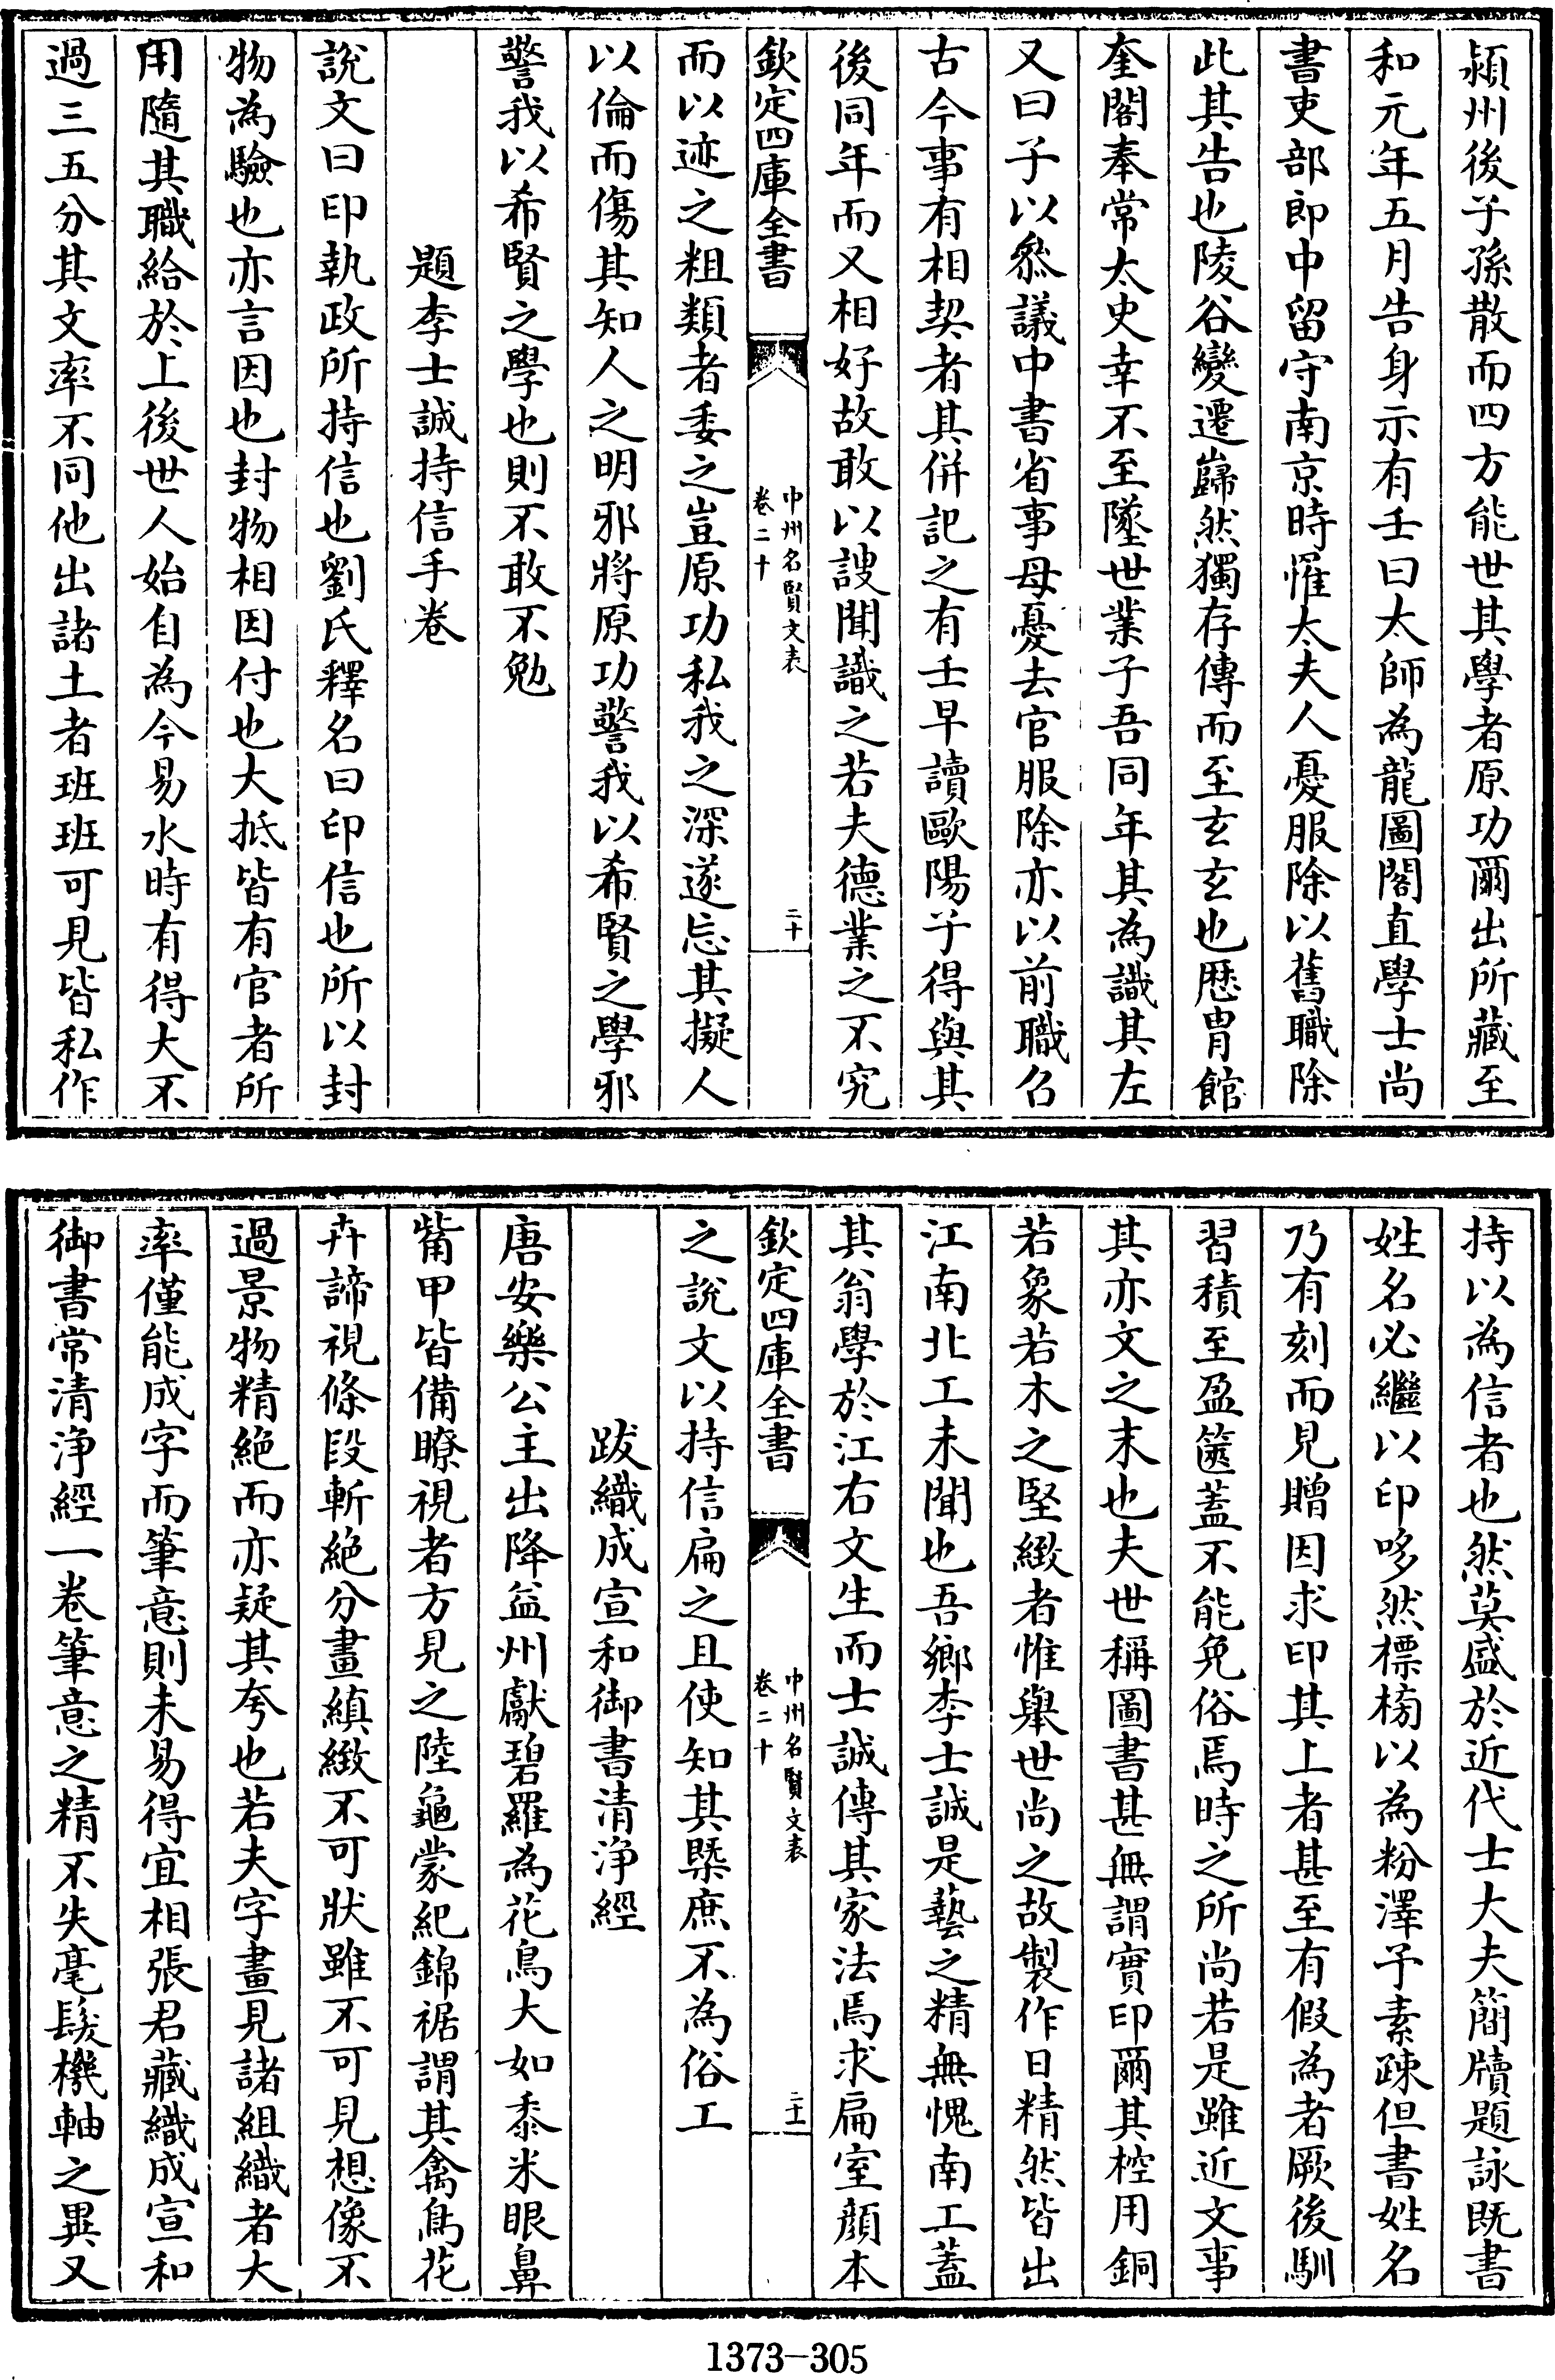 潁州後子孫散而四方能世其學者原功爾出所藏至
和元年五月告身示有壬曰太師為龍圖閣直學士尚
書吏部郎中留守南京時罹太夫人憂服除以舊職除
此其告也陵谷變遷巋然獨存傳而至玄玄也歴胄館
奎閣奉常太史幸不至墜世業子吾同年其為識其左
又曰子以叅議中書省事母憂去官服除亦以前職召
古今事有相契者其併記之有壬早讀歐陽子得與其
後同年而又相好故敢以謏聞識之若夫德業之不究
欽定四庫全書
中州名賢文表
卷二十
二十
而以迹之粗類者委之豈原功私我之深遂忘其擬人
以倫而傷其知人之明邪將原功警我以希賢之學邪
警我以希賢之學也則不敢不勉
題李士誠持信手卷
說文曰印執政所持信也劉氏釋名曰印信也所以封
物為驗也亦言因也封物相因付也大抵皆有官者所
用隨其職給於上後世人始自為今易水時有得大不
過三五分其文率不同他出諸土者班班可見皆私作
持以為信者也然莫盛於近代士大夫簡牘題詠既書
姓名必繼以印哆然標榜以為粉澤予素疎但書姓名
乃有刻而見贈因求印其上者甚至有假為者厥後馴
習積至盈篋蓋不能免俗焉時之所尚若是雖近文事
其亦文之末也夫世稱圖書甚無謂實印爾其椌用銅
若象若木之堅緻者惟舉世尚之故製作日精然皆出
江南北工未聞也吾鄉李士誠是藝之精無愧南工蓋
其翁學於江右文生而士誠傳其家法焉求扁室顔本
欽定四庫全書
中州名賢文表
卷二十
二十一
之說文以持信扁之且使知其槩庶不為俗工
跋織成宣和御書清浄經
唐安樂公主出降益州獻碧羅為花鳥大如黍米眼鼻
觜甲皆備瞭視者方見之陸龜蒙紀錦裾謂其禽鳥花
卉諦視條段斬絶分畫縝緻不可狀雖不可見想像不
過景物精絶而亦疑其夸也若夫字畫見諸組織者大
率僅能成字而筆意則未易得宜相張君藏織成宣和
御書常清浄經一卷筆意之精不失毫髮機軸之異又
1373-305